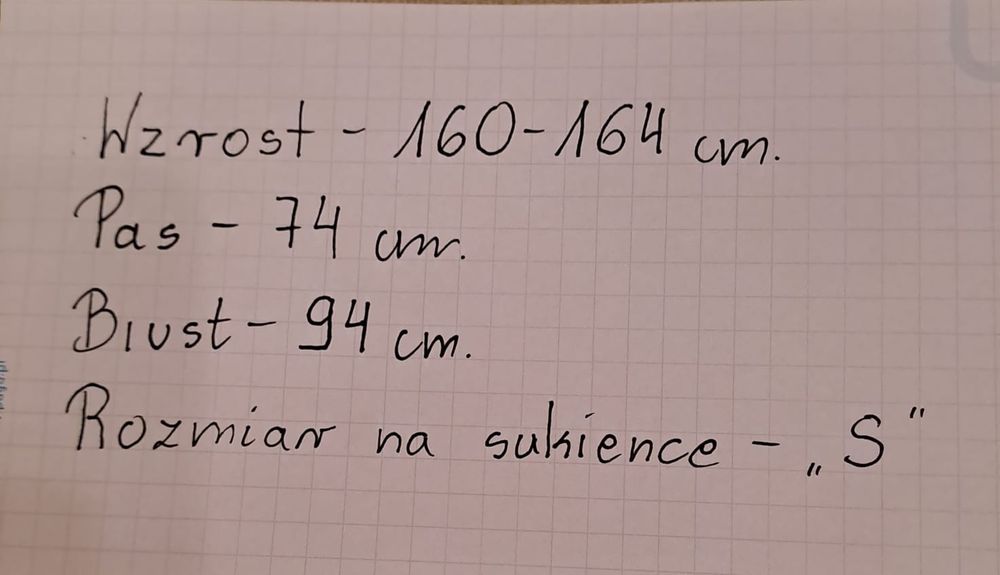 Wzrost - 160-164 cm.
Pas - 74 cm.
Biust - 94 cm.
Rozmiar na sukience - „S"